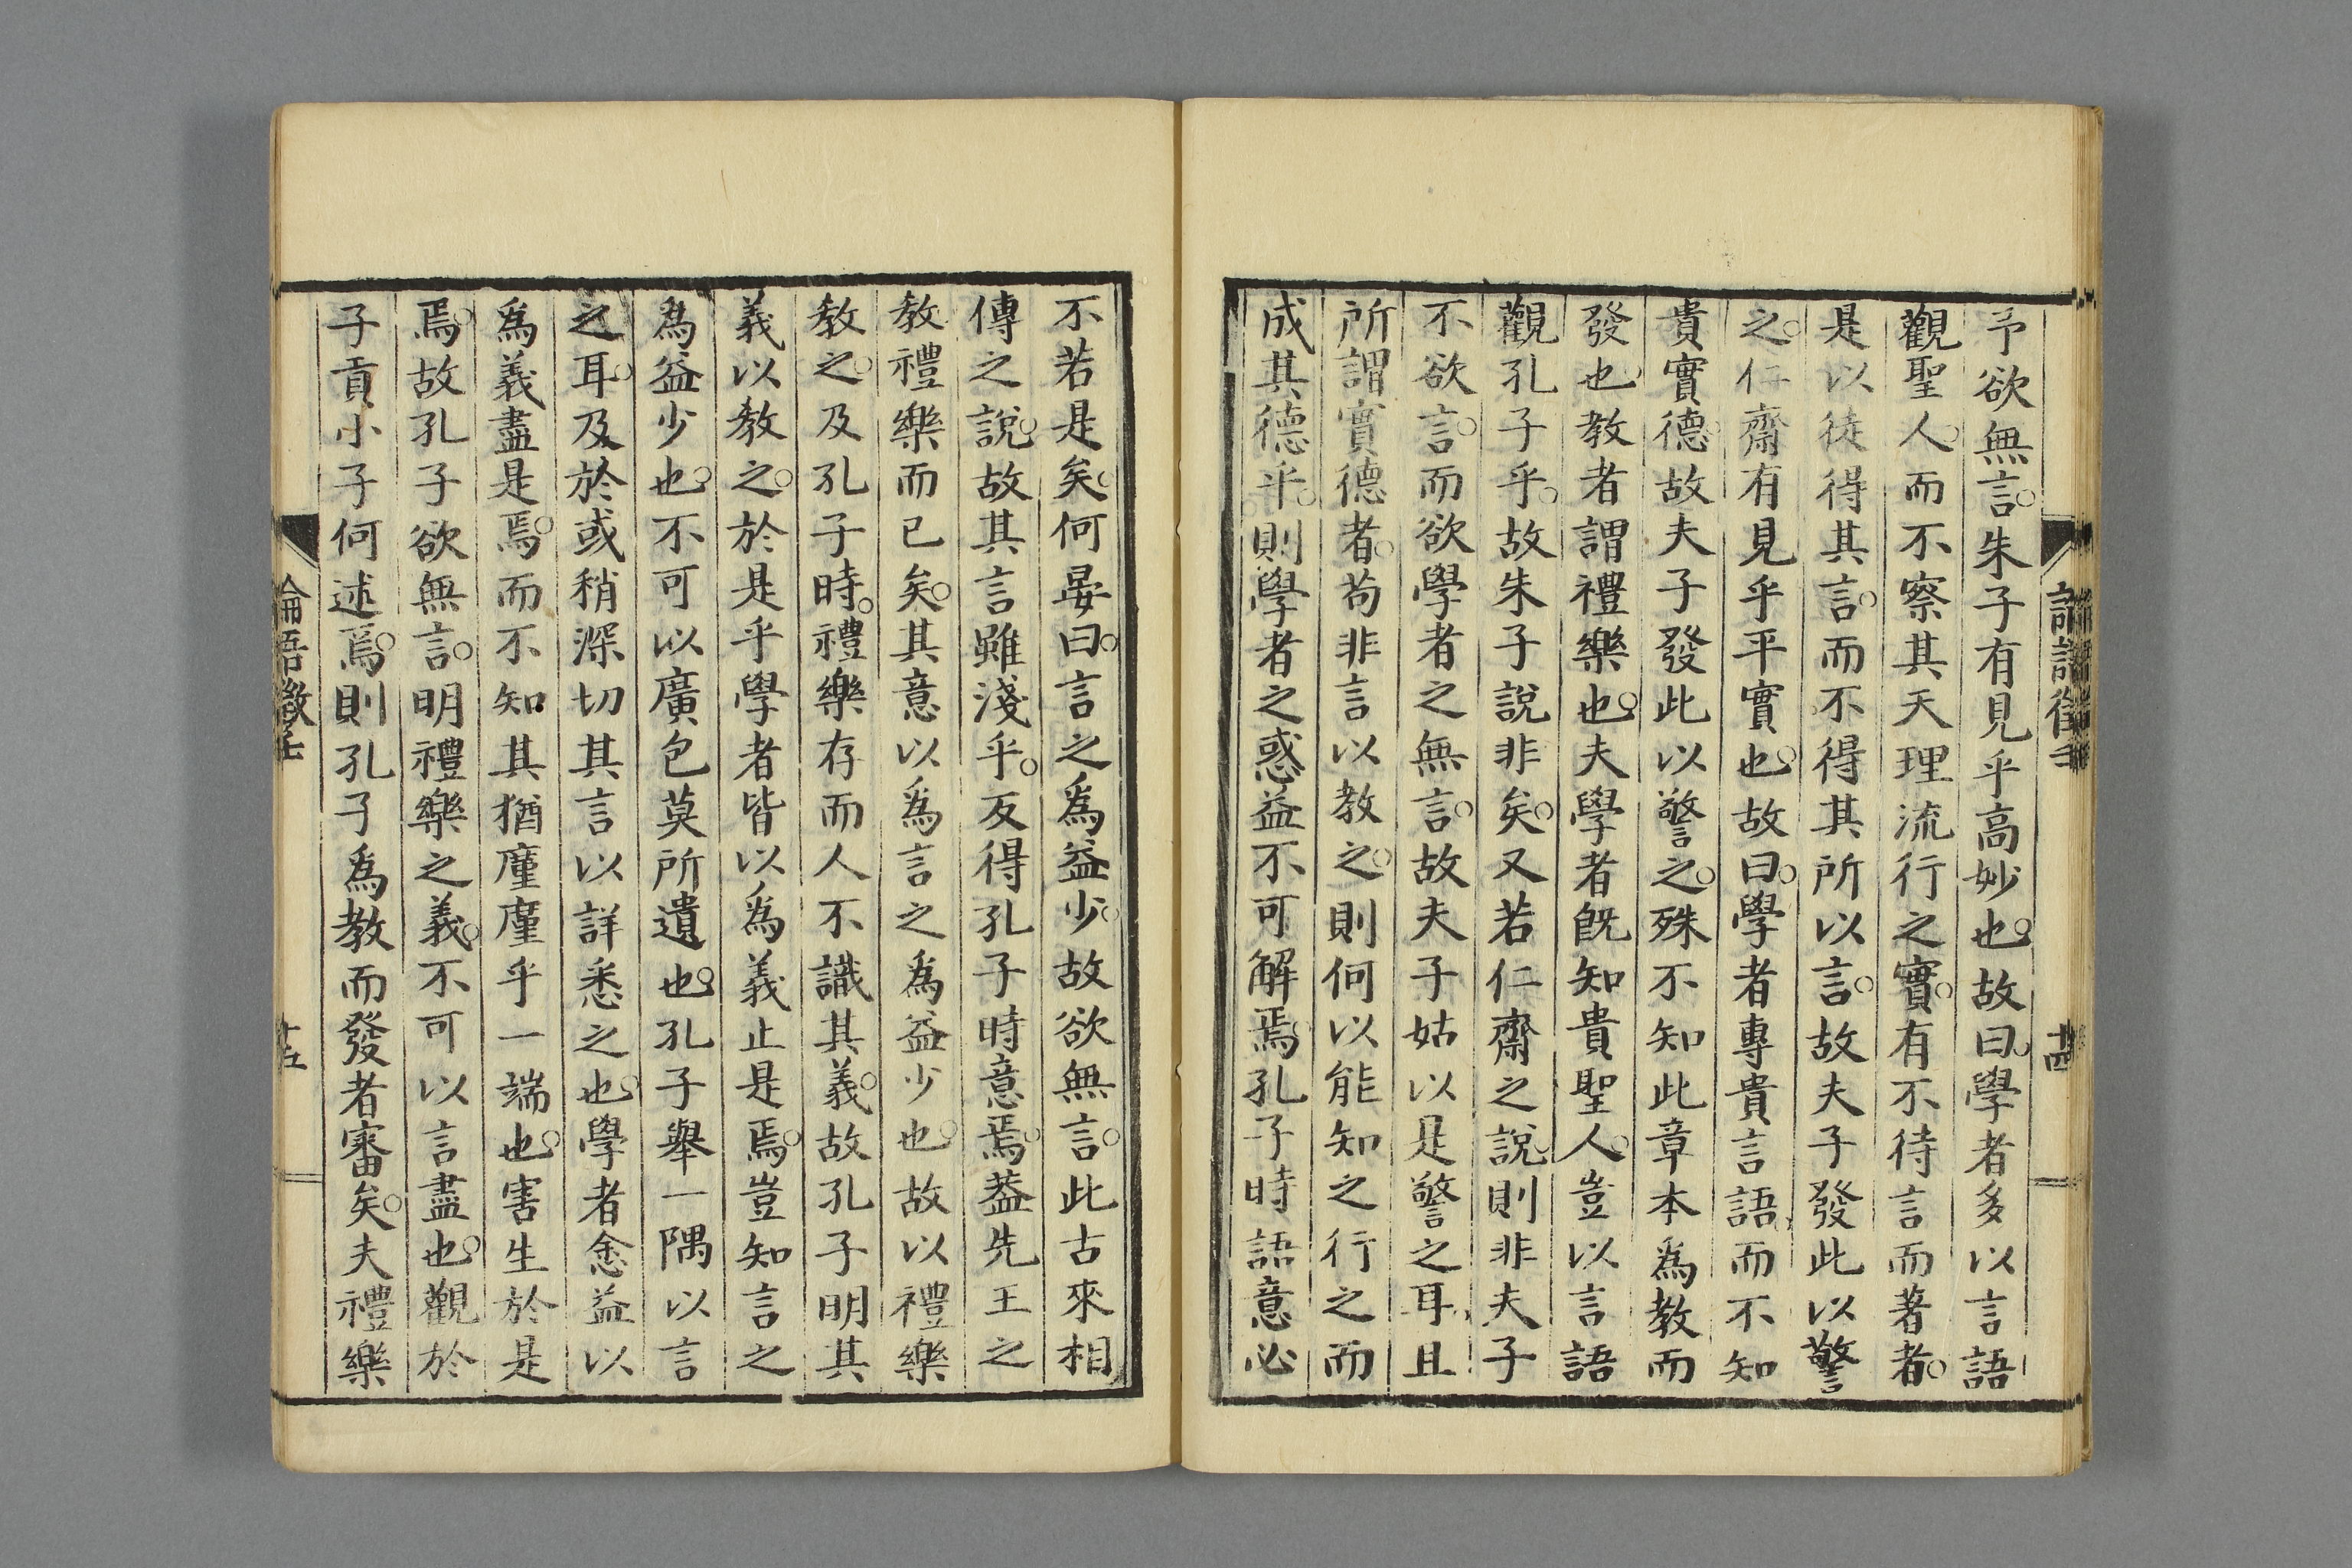 予欲無言。朱子有見乎高妙也。故曰。學者多以言語
觀聖人。而不察其天理流行之實。有不待言而著者。
是以徒得其言。而不得其所以言。故夫子發此以警
之。仁齋有見乎平實也。故曰。學者專貴言語。而不知
貴實德。故夫子發此以警之。殊不知此章本爲教而
發也。教者謂禮樂也。夫學者既知貴聖人。豈以言語
觀孔子乎。故朱子說非矣。又若仁齋之說。則非夫子
不欲言。而欲學者之無言。故夫子姑以是警之耳。且
所謂實德者。苟非言以教之。則何以能知之行之而
成其德乎。則學者之惑益不可解焉。孔子時語意必
不若是矣。何晏曰。言之爲益少。故欲無言。此古來相
傳之說。故其言雖淺乎。反得孔子時意焉。葢先王之
教禮樂而已矣。其意以爲言之爲益少也。故以禮樂
教之。及孔子時。禮樂存而人不識其義。故孔子明其
義以教之。於是乎學者皆以爲義止是焉。豈知言之
爲益少也。不可以廣包莫所遺也。孔子舉一隅以言
之耳。及於或稍深切其言以詳悉之也。學者愈益以
爲義盡是焉。而不知其猶廑廑乎一端也。害生於是
焉。故孔子欲無言。明禮樂之義。不可以言盡也。觀於
子貢小子何述焉。則孔子爲教而發者審矣。夫禮樂
論語徵壬
十四
論語徵壬
十五